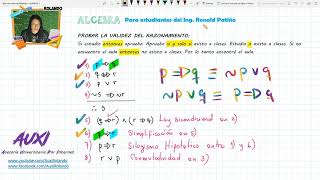 ROLANDO
ALGEBRA Para estudiantes del Ing. Renald Patiño
PROBAR LA VALIDEZ DEL RAZONAMIENTO:
Si estudio entonces apruebo. Apruebo si y solo si asisto a clases. Estudio o asisto a clases. Si no
encuentro el aula entonces no asisto a clases. Por lo tanto encontré el aula.
1)
2)
3)
4)
∴ S
5) (q → r) ∧ (r → q) Ley bicondicional en 2)
6) Simplificación en 5)
7) p → r Silogismo Hipotético entre 1) y 6)
8) r ∨ p Conmutatividad en 3)
AUXI
Asesoría Universitaria Por Internet
www.youtube.com/AuxiRolando
www.facebook.com/AuxiRolando
p → q ≡ ~p ∨ q
~p ∨ q ≡ p → q